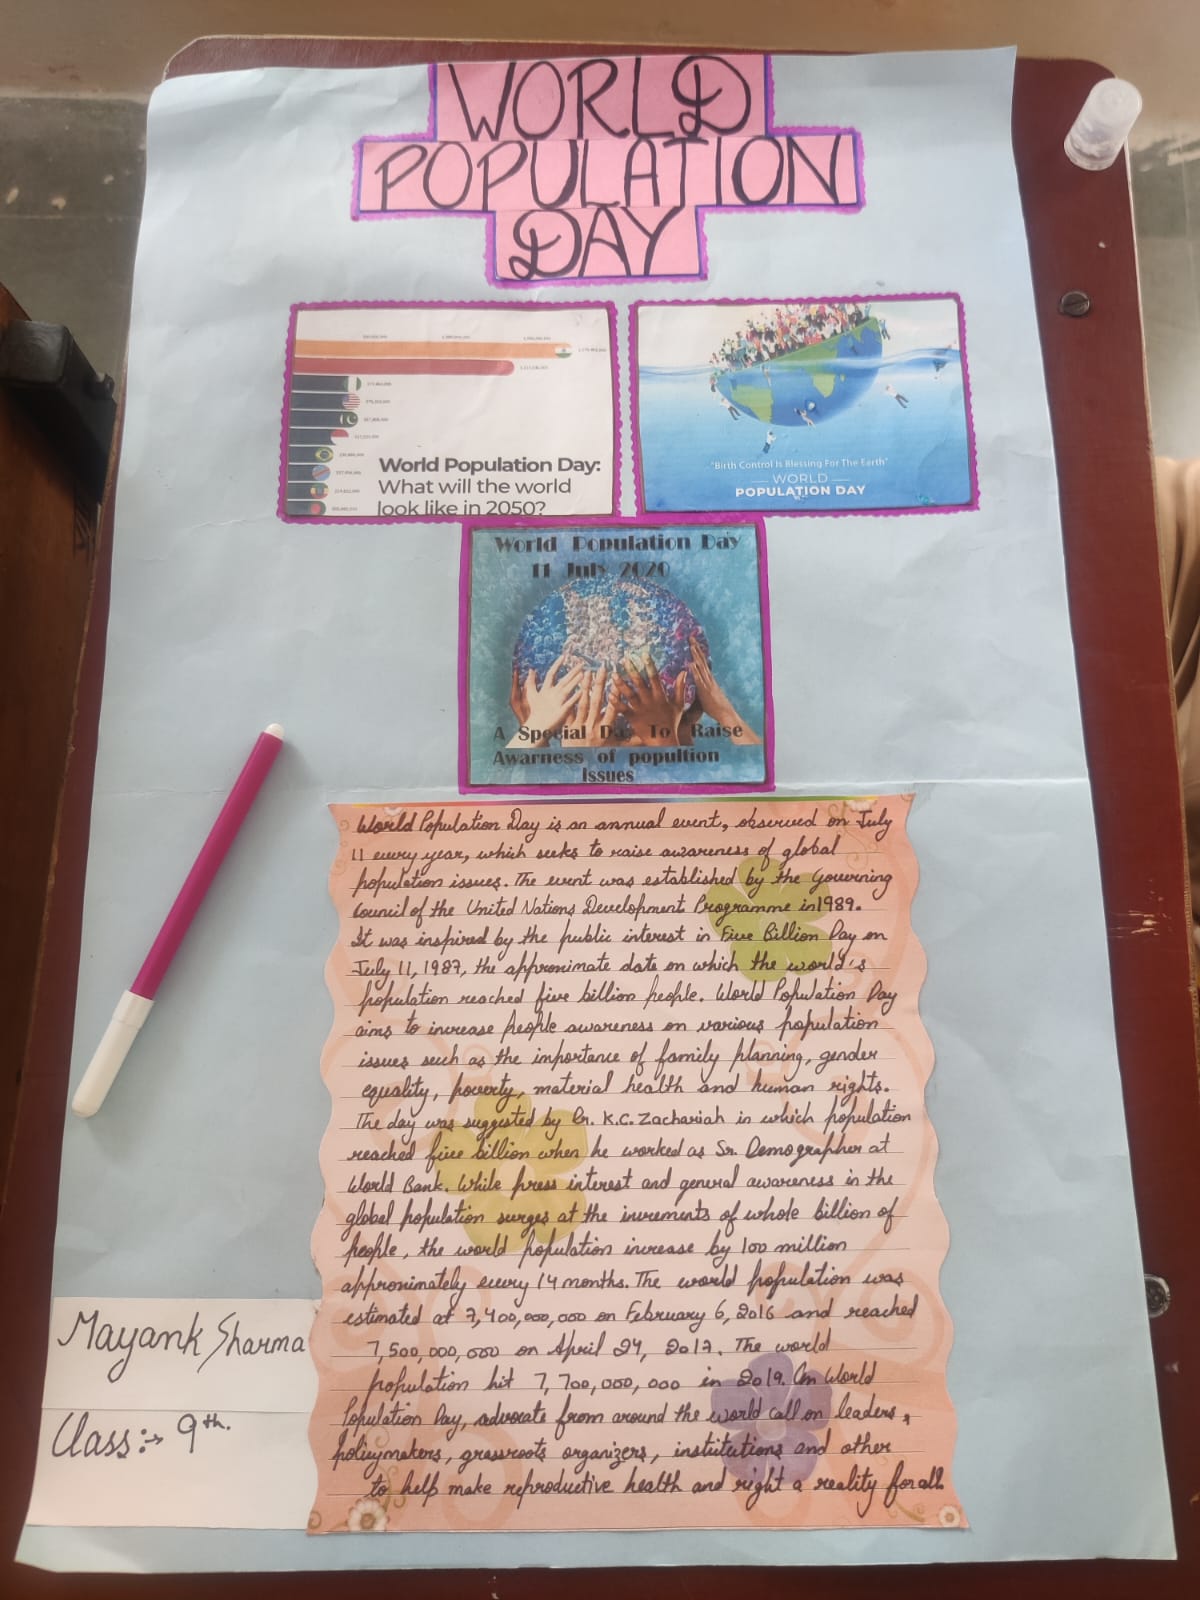 WORLD
POPULATION
DAY
World Population Day:
What will the world
look like in 2050?
"Birth Control Is Blessing For The Earth"
WORLD
POPULATION DAY
World Population Day
11 July 2020
A Special Day To Raise
Awarness of popultion
Issues
World Population Day is an annual event, observed on July
11 every year, which seeks to raise awareness of global
population issues. The event was established by the Governing
Council of the United Nations Development Programme in 1989.
It was inspired by the public interest in Five Billion Day on
July 11, 1987, the approximate date on which the world's
population reached five billion people. World Population Day
aims to increase people awareness on various population
issues such as the importance of family planning, gender
equality, poverty, material health and human rights.
The day was suggested by Dr. K.C. Zachariah in which population
reached five billion when he worked as Sr. Demographer at
World Bank. While press interest and general awareness in the
global population surges at the increments of whole billion of
people, the world population increase by 100 million
approximately every 14 months. The world population was
estimated at 7,400,000,000 on February 6, 2016 and reached
7,500,000,000 on April 24, 2017. The world
population hit 7,700,000,000 in 2019. On World
Population Day, advocate from around the world call on leaders,
policymakers, grassroots organizers, institutions and other
to help make reproductive health and right a reality for all.
Mayank Sharma
Class:→ 9th.